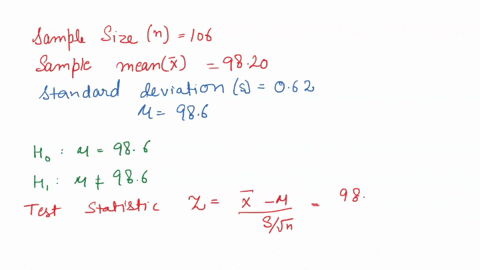 Sample Size (n) = 106
Sample mean (x̄) = 98.20
Standard deviation (s) = 0.62
M = 98.6
H₀ : M = 98.6
H₁ : M ≠ 98.6
Test Statistic Z = x̄ - M / S/√n = 98.